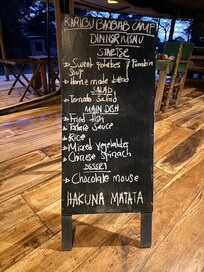 KARIBU BAOBAB CAMP
DINNER MENU
STARTER
Sweet potatoes / Pumpkin
Soup
Home made bread
SALAD
Tomato Salad
MAIN DISH
Fried fish
Potato Sauce
Rice
Mixed vegetables
Chinese Spinach
DESSERT
Chocolate mouse
HAKUNA MATATA